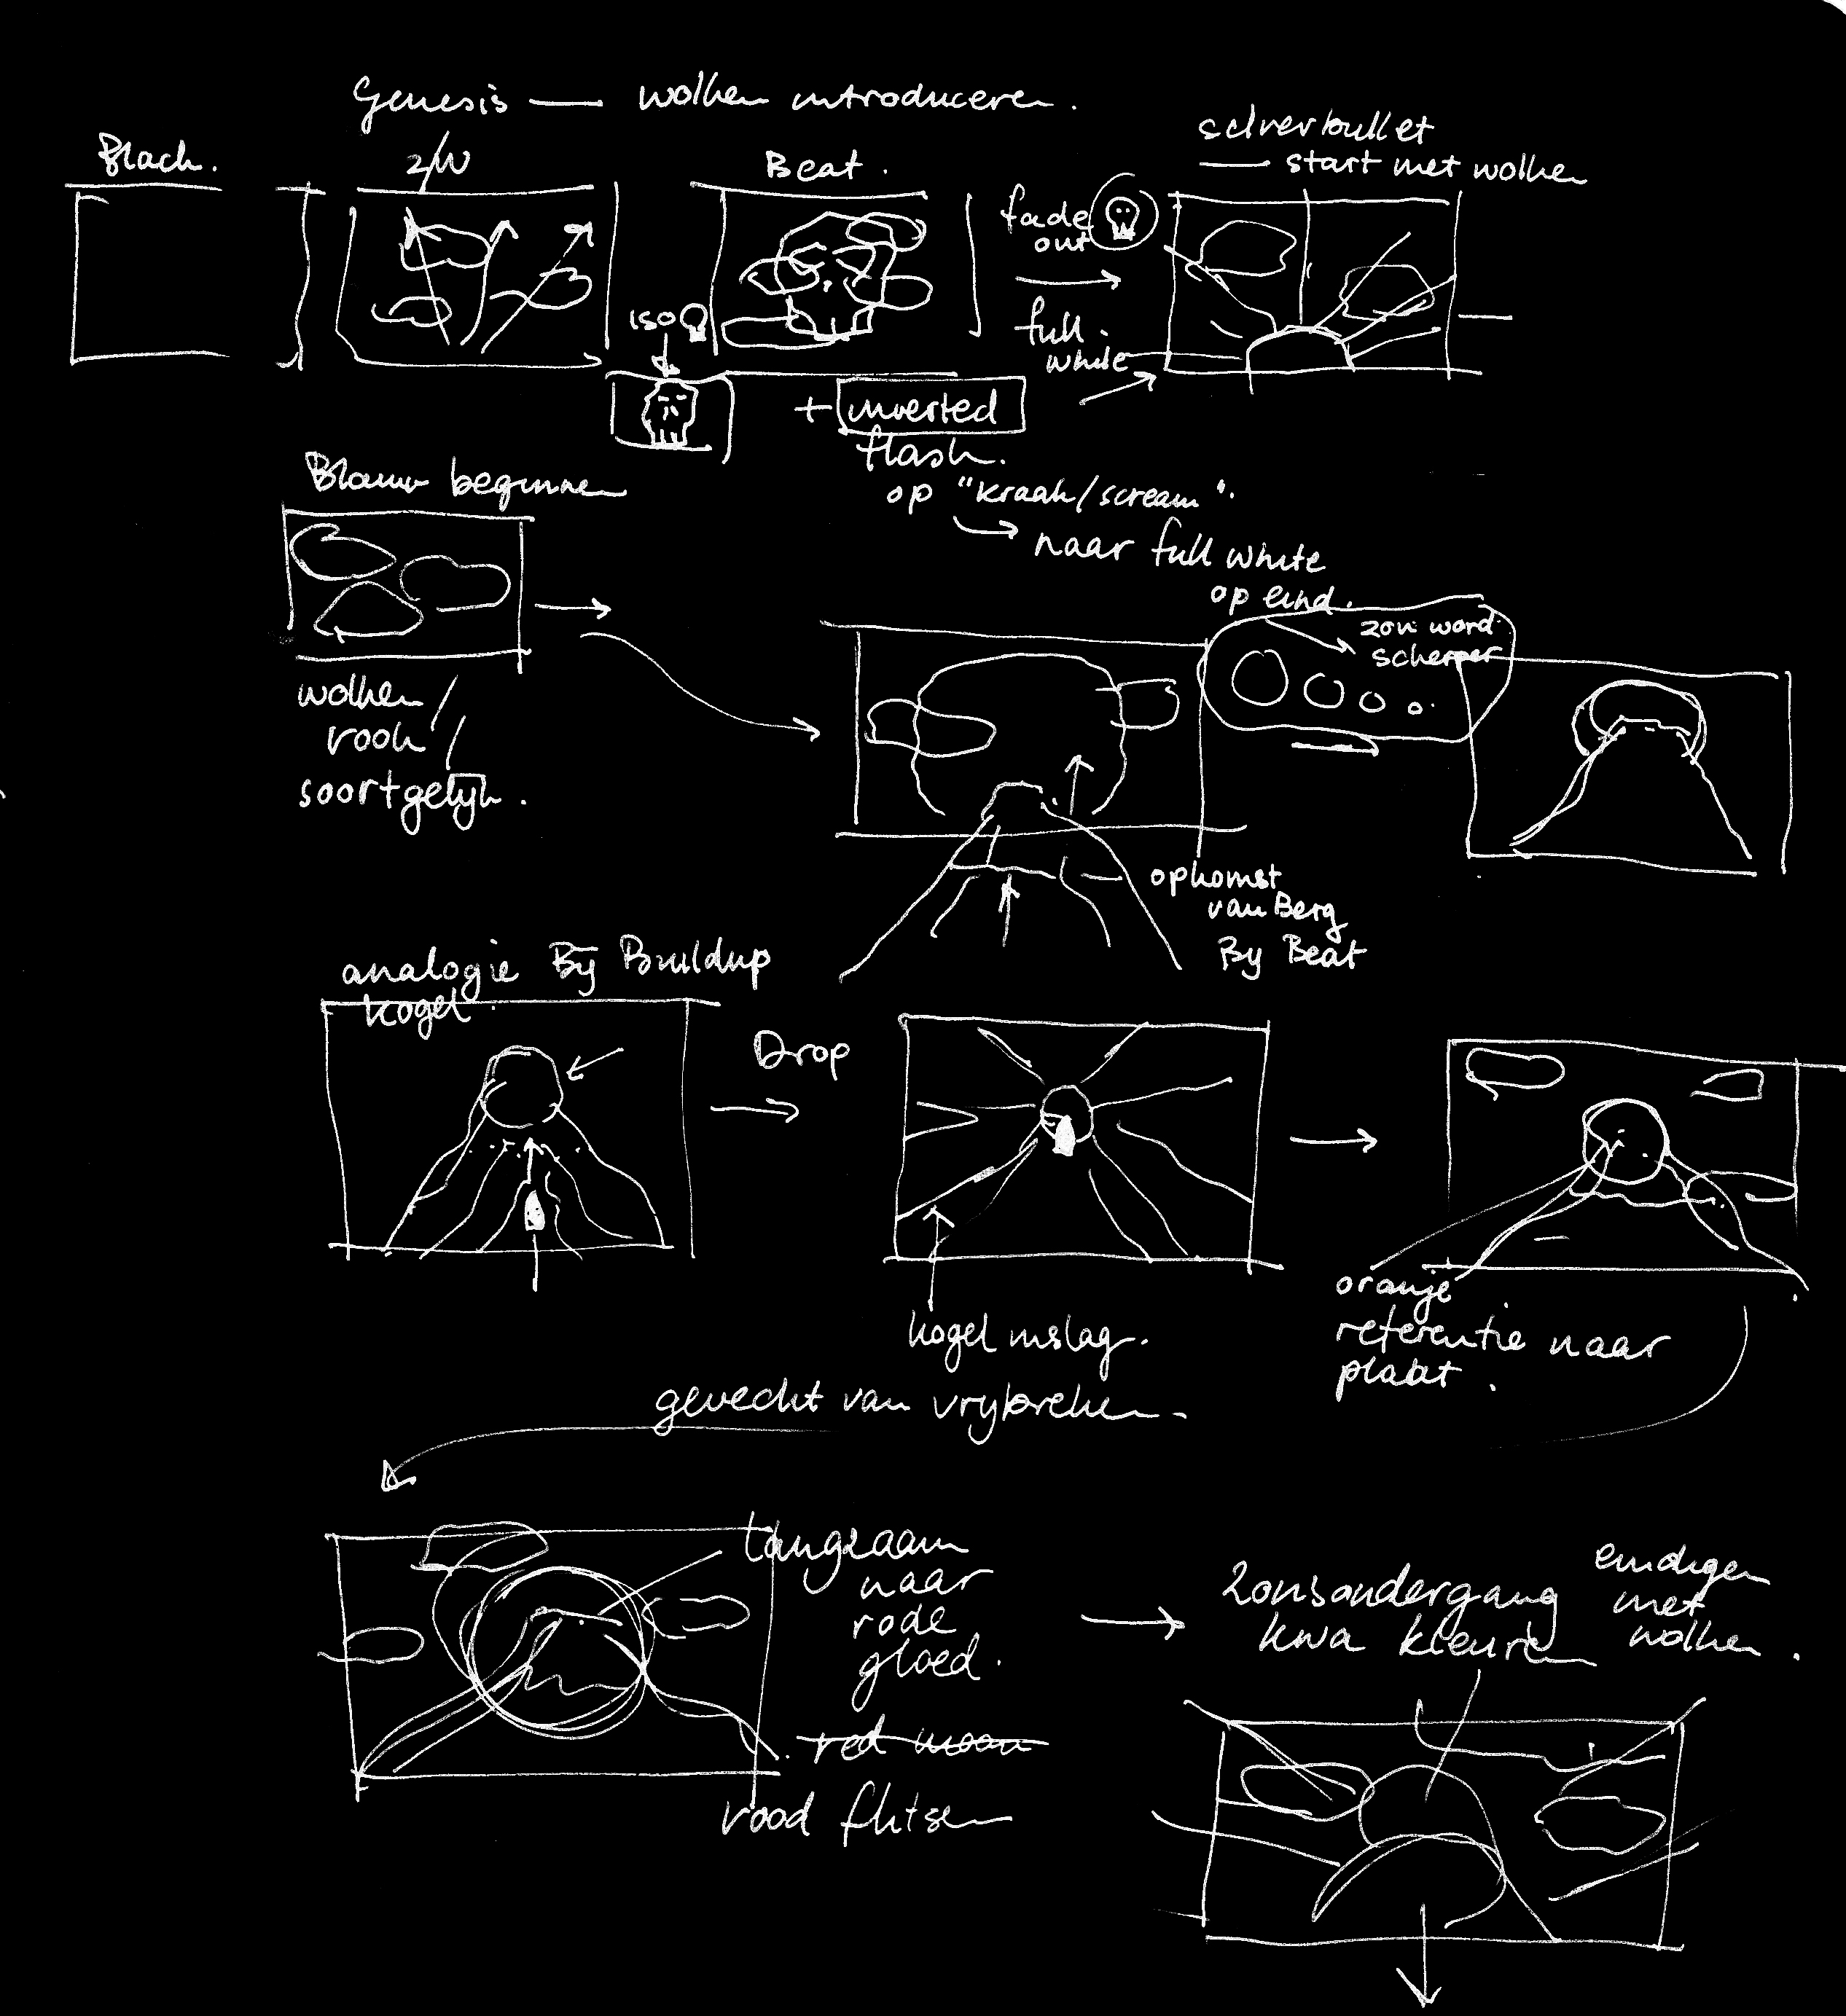 Genesis — wolken introduceren.
Black.
z/w
Beat.
silverbullet
— start met wolken
fade
out
full
white
iso
+ inverted
flash.
op "kraak/scream".
→ naar full white
op eind.
Blauw beginnen
wolken/
rook/
soortgelijk.
zon word
scherper
opkomst
van Berg
By Beat
analogie By Buildup
kogel.
Drop
kogel inslag.
oranje
referentie naar
plaat.
gevecht van vrybreken.
langzaam
naar
rode
gloed.
red moon
rood flitsen
zonsondergang
kwa kleuren
eindigen
met
wolken.